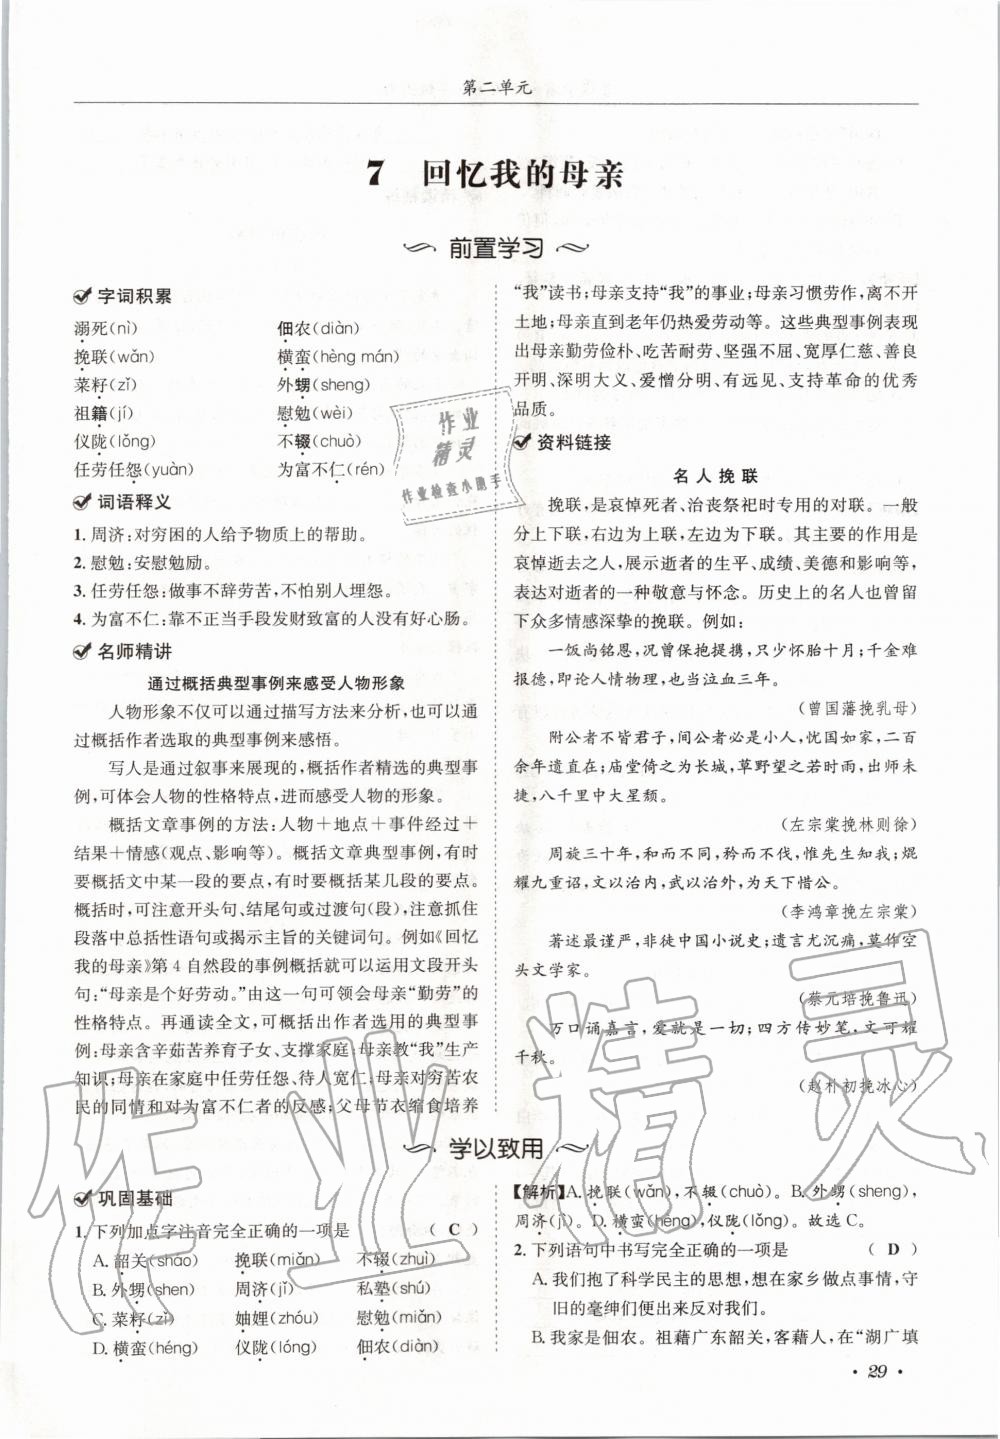 第二单元
7 回忆我的母亲
前置学习
字词积累
溺死(nì) 佃农(diàn)
挽联(wǎn) 横蛮(hèng mán)
菜籽(zǐ) 外甥(sheng)
祖籍(jí) 慰勉(wèi)
仪陇(lǒng) 不辍(chuò)
任劳任怨(yuàn) 为富不仁(rén)
词语释义
1. 周济:对穷困的人给予物质上的帮助。
2. 慰勉:安慰勉励。
3. 任劳任怨:做事不辞劳苦,不怕别人埋怨。
4. 为富不仁:靠不正当手段发财致富的人没有好心肠。
名师精讲
通过概括典型事例来感受人物形象
人物形象不仅可以通过描写方法来分析,也可以通
过概括作者选取的典型事例来感悟。
写人是通过叙事来展现的,概括作者精选的典型事
例,可体会人物的性格特点,进而感受人物的形象。
概括文章事例的方法:人物+地点+事件经过+
结果+情感(观点、影响等)。概括文章典型事例,有时
要概括文中某一段的要点,有时要概括某几段的要点。
概括时,可注意开头句、结尾句或过渡句(段),注意抓住
段落中总括性语句或揭示主旨的关键词句。例如《回忆
我的母亲》第4自然段的事例概括就可以运用文段开头
句:“母亲是个好劳动。”由这一句可领会母亲“勤劳”的
性格特点。再通读全文,可概括出作者选用的典型事
例:母亲含辛茹苦养育子女、支撑家庭;母亲教“我”生产
知识;母亲在家庭中任劳任怨、待人宽仁;母亲对穷苦农
民的同情和对为富不仁者的反感;父母节衣缩食培养
“我”读书;母亲支持“我”的事业;母亲习惯劳作,离不开
土地;母亲直到老年仍热爱劳动等。这些典型事例表现
出母亲勤劳俭朴、吃苦耐劳、坚强不屈、宽厚仁慈、善良
开明、深明大义、爱憎分明、有远见、支持革命的优秀
品质。
资料链接
名人挽联
挽联,是哀悼死者、治丧祭祀时专用的对联。一般
分上下联,右边为上联,左边为下联。其主要的作用是
哀悼逝去之人,展示逝者的生平、成绩、美德和影响等,
表达对逝者的一种敬意与怀念。历史上的名人也曾留
下众多情感深挚的挽联。例如:
一饭尚铭恩,况曾保抱提携,只少怀胎十月;千金难
报德,即论人情物理,也当泣血三年。
(曾国藩挽乳母)
附公者不皆君子,间公者必是小人,忧国如家,二百
余年遗直在;庙堂倚之为长城,草野望之若时雨,出师未
捷,八千里中大星颓。
(左宗棠挽林则徐)
周旋三十年,和而不同,矜而不伐,惟先生知我;焜
耀九重诏,文以治内,武以治外,为天下惜公。
(李鸿章挽左宗棠)
著述最谨严,非徒中国小说史;遗言尤沉痛,莫作空
头文学家。
(蔡元培挽鲁迅)
万口诵嘉言,爱就是一切;四方传妙笔,文可耀
千秋。
(赵朴初挽冰心)
学以致用
巩固基础
1. 下列加点字注音完全正确的一项是 ( C )
A. 韶关(shāo) 挽联(miǎn) 不辍(zhuì)
B. 外甥(shen) 周济(jǐ) 私塾(shú)
C. 菜籽(zǐ) 妯娌(zhóu) 慰勉(miǎn)
D. 横蛮(héng) 仪陇(lóng) 佃农(diàn)
【解析】A. 挽联(wǎn),不辍(chuò)。B. 外甥(sheng),
周济(jì)。D. 横蛮(hèng),仪陇(lǒng)。故选C。
2. 下列语句中书写完全正确的一项是 ( D )
A. 我们抱了科学民主的思想,想在家乡做点事情,守
旧的毫绅们便出来反对我们。
B. 我家是佃农。祖藉广东韶关,客藉人,在“湖广填
· 29 ·
作业精灵
作业
精灵
作业检查小助手